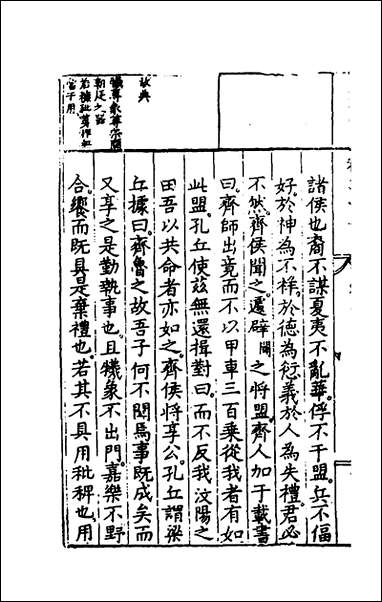 故典
犧尊象尊
朝廷之
諸侯也裔不謀夏夷不亂華俘不干盟兵不偪
好於神為不祥於德為愆義於人為失禮君必
不然齊侯聞之遽辟闢之將盟齊人加于載書
曰齊師出竟而不以甲車三百乘從我者有如
此盟孔丘使茲無還揖對曰而不反我汶陽之
田吾以共命者亦如之齊侯將享公孔丘謂梁
丘據曰齊魯之故吾子何不聞焉事既成矣而
又享之是勤執事也且犧象不出門嘉樂不野
合饗而既具是棄禮也若其不具用秕稗也用